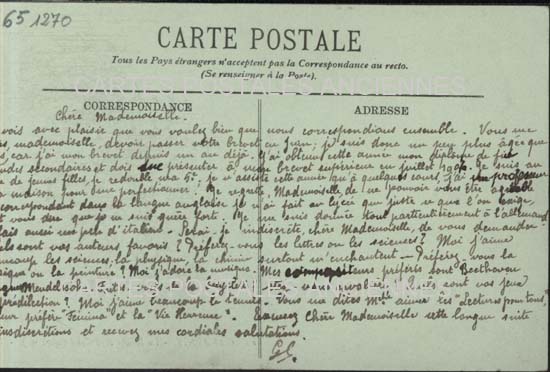 65 1270
CARTE POSTALE
Tous les Pays étrangers n'acceptent pas la Correspondance au recto.
(Se renseigner à la Poste).
CARTES POSTALES ANCIENNES
CORRESPONDANCE
ADRESSE
Chère Mademoiselle.
vois avec plaisir que vous voulez bien que nous correspondions ensemble. Vous me
mademoiselle, devoir passer votre brevet en Juin; je suis donc un peu plus âgée que
car j'ai mon brevet depuis un an déjà. J'ai obtenu cette année mon diplôme de fin
études secondaires et dois me présenter à mon brevet supérieur en juillet 1909. Je suis au
de jeunes filles je redouble ma 6e. je n'assiste cette année qu'à quelques cours, j'ai un professeur
à la maison pour me perfectionner. Je regrette, Mademoiselle, de ne pouvoir vous être agréable
correspondant dans la langue anglaise je n'ai fait en lycée que juste ce que l'on exige,
vous dire que je n'en suis guère fort. Je me suis donnée tout particulièrement à l'allemand
fais aussi un peu d'italien. Serai-je indiscrète, chère Mademoiselle, de vous demander
quels sont vos auteurs favoris? Préférez-vous les lettres ou les sciences? Moi j'aime
beaucoup les sciences, la physique, la chimie surtout m'enchantent. Préférez-vous la
musique ou la peinture? Moi j'adore la musique. Mes compositeurs préférés sont Beethoven
Mendelsohn sont vos jeux
prédilection? Moi j'aime beaucoup le tennis. Vous me dites Mlle aimer les "Lectures pour tous,"
préfère "Femina" et la "Vie Heureuse". Excusez Chère Mademoiselle cette longue suite
indiscrétions et recevez mes cordiales salutations.